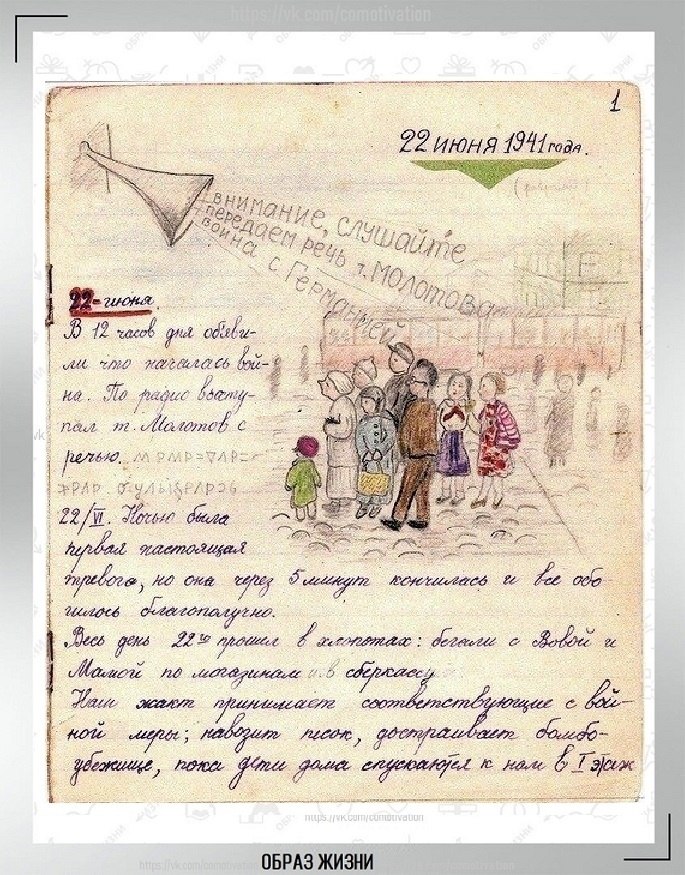 https://vk.com/comotivation
1
22 июня 1941 года.
внимание, слушайте
передаем речь т. Молотова
война с Германией
22-июня.
В 12 часов дня объяви-
ли что началась вой-
на. По радио высту-
пал т. Молотов с
речью.
22/VI. Ночью была
первая настоящая
тревога, но она через 5 минут кончилась и все обо-
шлось благополучно.
Весь день 22го прошел в хлопотах: бегали с Вовой и
Мамой по магазинам и в сберкассу.
Наш жакт принимает соответствующие с вой-
ной меры; навозит песок, достраивает бомбо-
убежище, пока дети дома спускаются к нам в I этаж
https://vk.com/comotivation
https://vk.com/comotivation
ОБРАЗ ЖИЗНИ